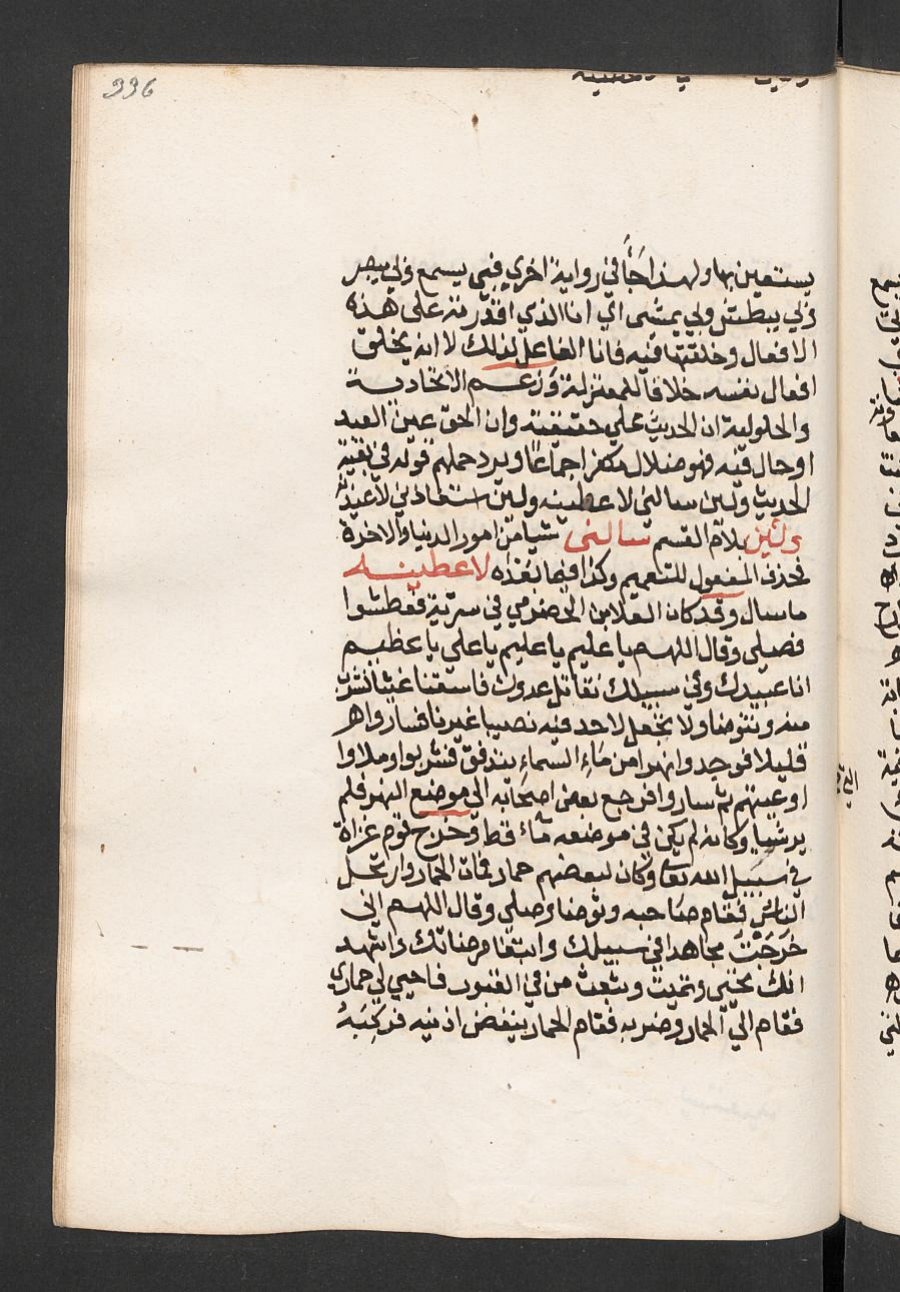 336
يستعين بها ولهذا جَاَ في رواية اخري فبي يسمع وبي يبصر
وبي يبطش وبي يمشي اي انا الذي اقدرته على هذه
الافعال وخلقتها فيه فانا الفاعل لذلك لا انه يخلق
افعال نفسه خلافا للمعتزلة وزعم الاتحادية
والحلولية ان الحديث علي حقيقته وان الحق عين العبد
او حال فيه فهو ضلال مكفر اجماعًا ويرد حملهم قوله في بقية
الحديث ولين سالني لاعطينه ولين استعاذني لاعيذنه
ولئين بلام القسم سالني شيا من امور الدنيا والاخرة
فحذف المفعول للتعميم وكذا فيما بعده لاعطينه
ما سال وقد كان العلا بن الحضرمي في سرية فعطشوا
فصلي وقال اللهم يا عليم يا عليم يا علي يا عظيم
انا عبيدك وفي سبيلك نقاتل عدوك فاسقنا غيثا نشرب
منه ونتوضا ولا تجعل لاحد فيه نصيبا غيرنا فساروا هر
قليلا فوجدوا نهرا من مَاءِ السماءِ يتدفق فشربوا وملاوا
اوعيتهم ثم ساروا فرجع بعض اصحابه الي موضع النهر فلم
ير شيا وكانه لم يكن في موضعه ماء قط وخرج قوم غزاة
في سبيل الله تعا وكان لبعضهم حمار فمات الحمار وارتحل
الناس فقام صاحبه وتوضا وصلي وقال اللهم اني
خَرَجْتُ مجاهدا في سبيلك وابتغا مرضاتك واشهد
انك تحيي وتميت وتبعث من في القبور فاحيي لي حماري
فقام الي الحمار وضربه فقام الحمار ينفض اذنيه فركبَهُ